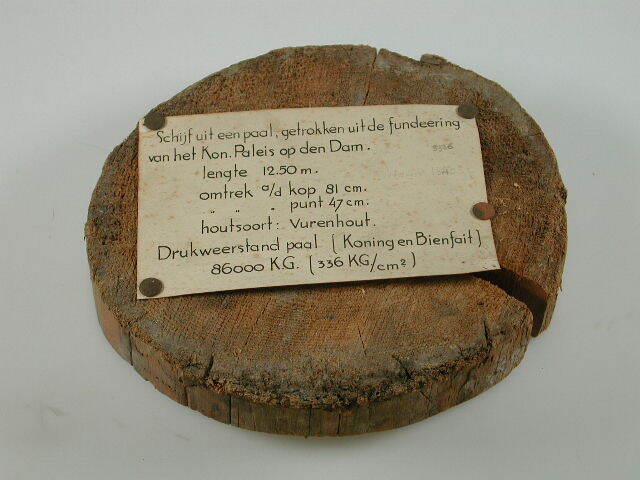 Schijf uit een paal, getrokken uit de fundeering
van het Kon. Paleis op den Dam.
lengte 12.50 m.
omtrek a/d kop 81 cm.
" " . punt 47 cm.
houtsoort: Vurenhout.
Drukweerstand paal (Koning en Bienfait)
86000 K.G. (336 KG/cm²)